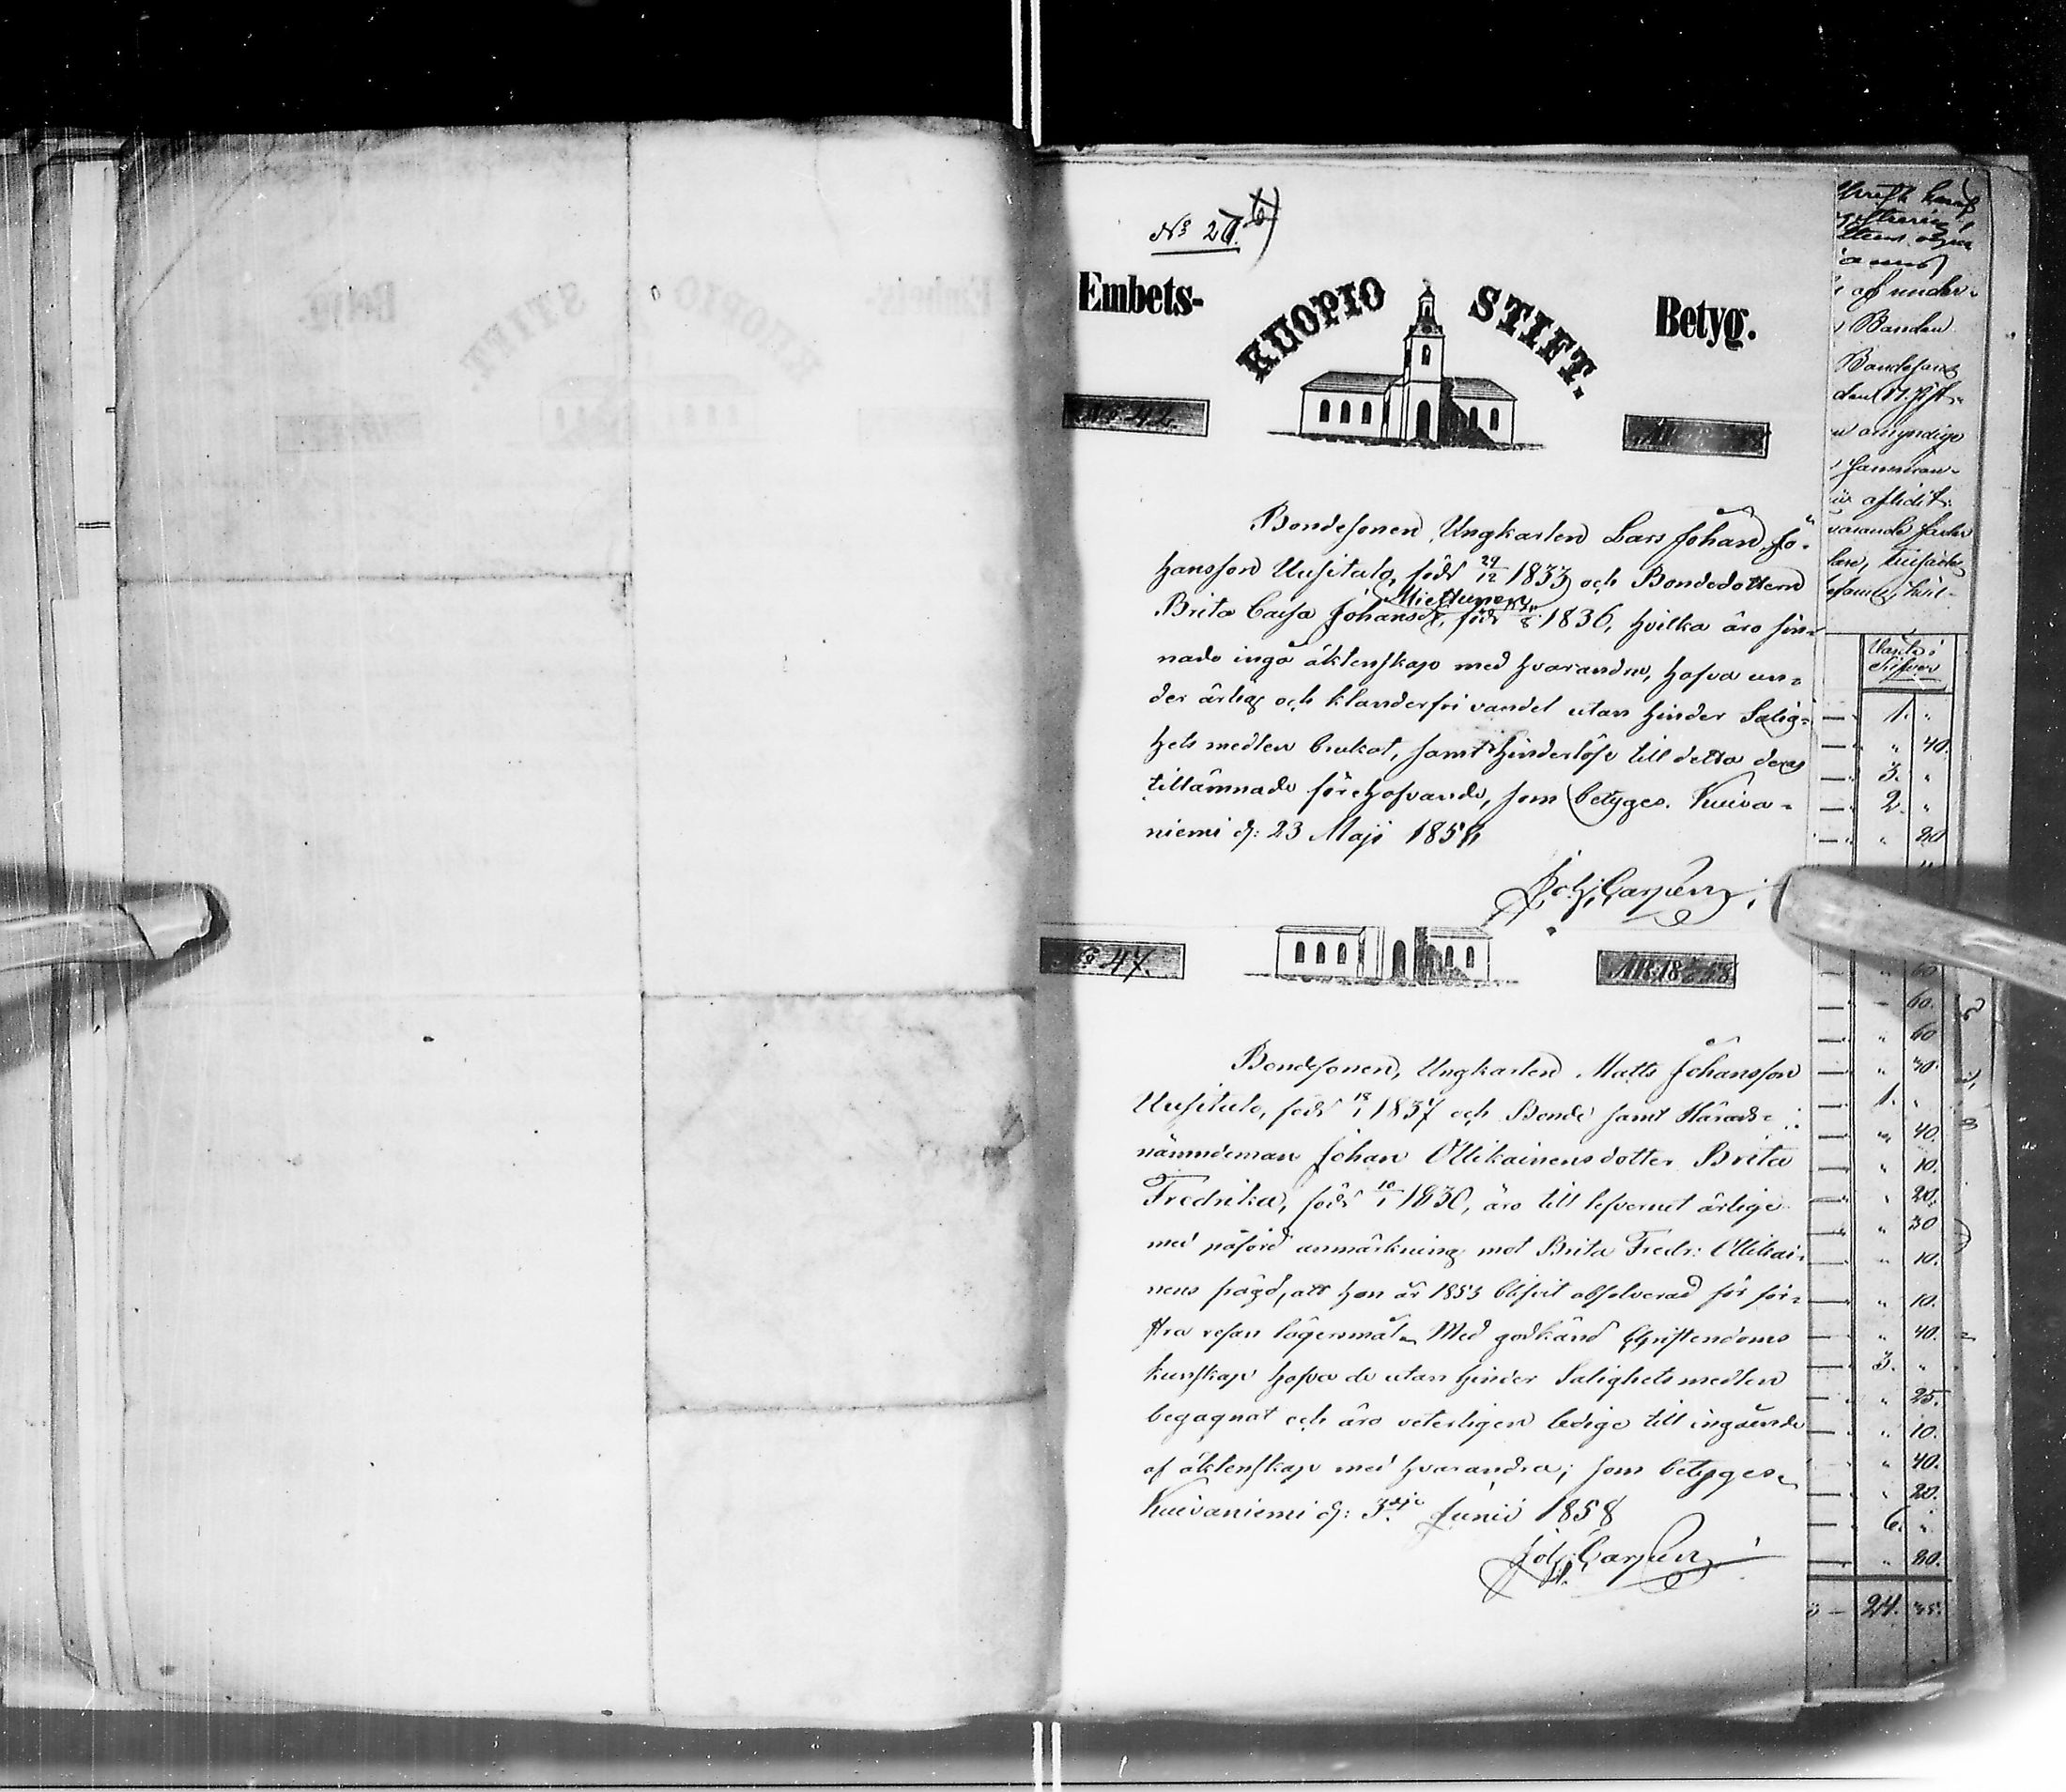 No 27. b)
Embets-
KUOPIO STIFT.
Betyg.
No 42.
Bondesonen, Ungkarlen Lars Johan Jo-
hansson Uusitalo, född 29/12 1833 och Bondedottern
Miettunen
Brita Caisa Johansdr, född 1836, hvilka äro sin-
nade ingå äktenskap med hvarandra, hafva un-
der ärlig och klanderfri vandel utan hinder Salig-
hets medlen brukat, samt hinderlöse till detta deras
tillämnade förehafvande, som betyges. Kuiva-
niemi d: 23 Maji 1858
Joh: Carpén
No 47.
ÅR 1858
Bondesonen, Ungkarlen Matts Johansson
Uusitalo, född 18/1 1837 och Bonde samt Härads-
nämndeman Johan Ollikainens dotter Brita
Fredrika, född 10/1 1830, äro till lefvernet ärlige
med påförd anmärkning mot Brita Fredr: Ollikai-
nens frägd, att hon år 1853 blifvit absolverad för för-
sta resan lägersmål. Med godkänd Christendoms
kunskap hafva de utan hinder Salighetsmedlen
begagnat och äro veterligen ledige till ingående
af äktenskap med hvarandra; som betyges.
Kuivaniemi d: 3dje Junii 1858
Joh: Carpén
af under-
Bondesons
omyndige
aflidit
varande fader
1. "
" 40.
3. "
2. "
" 80
60
60.
60
" 30.
1. "
" 40.
" 10.
" 20.
" 30
" 10.
" 10.
" 40.
3. "
" 25.
" 10.
" 40.
" 20.
6. "
" 80.
24. 35.